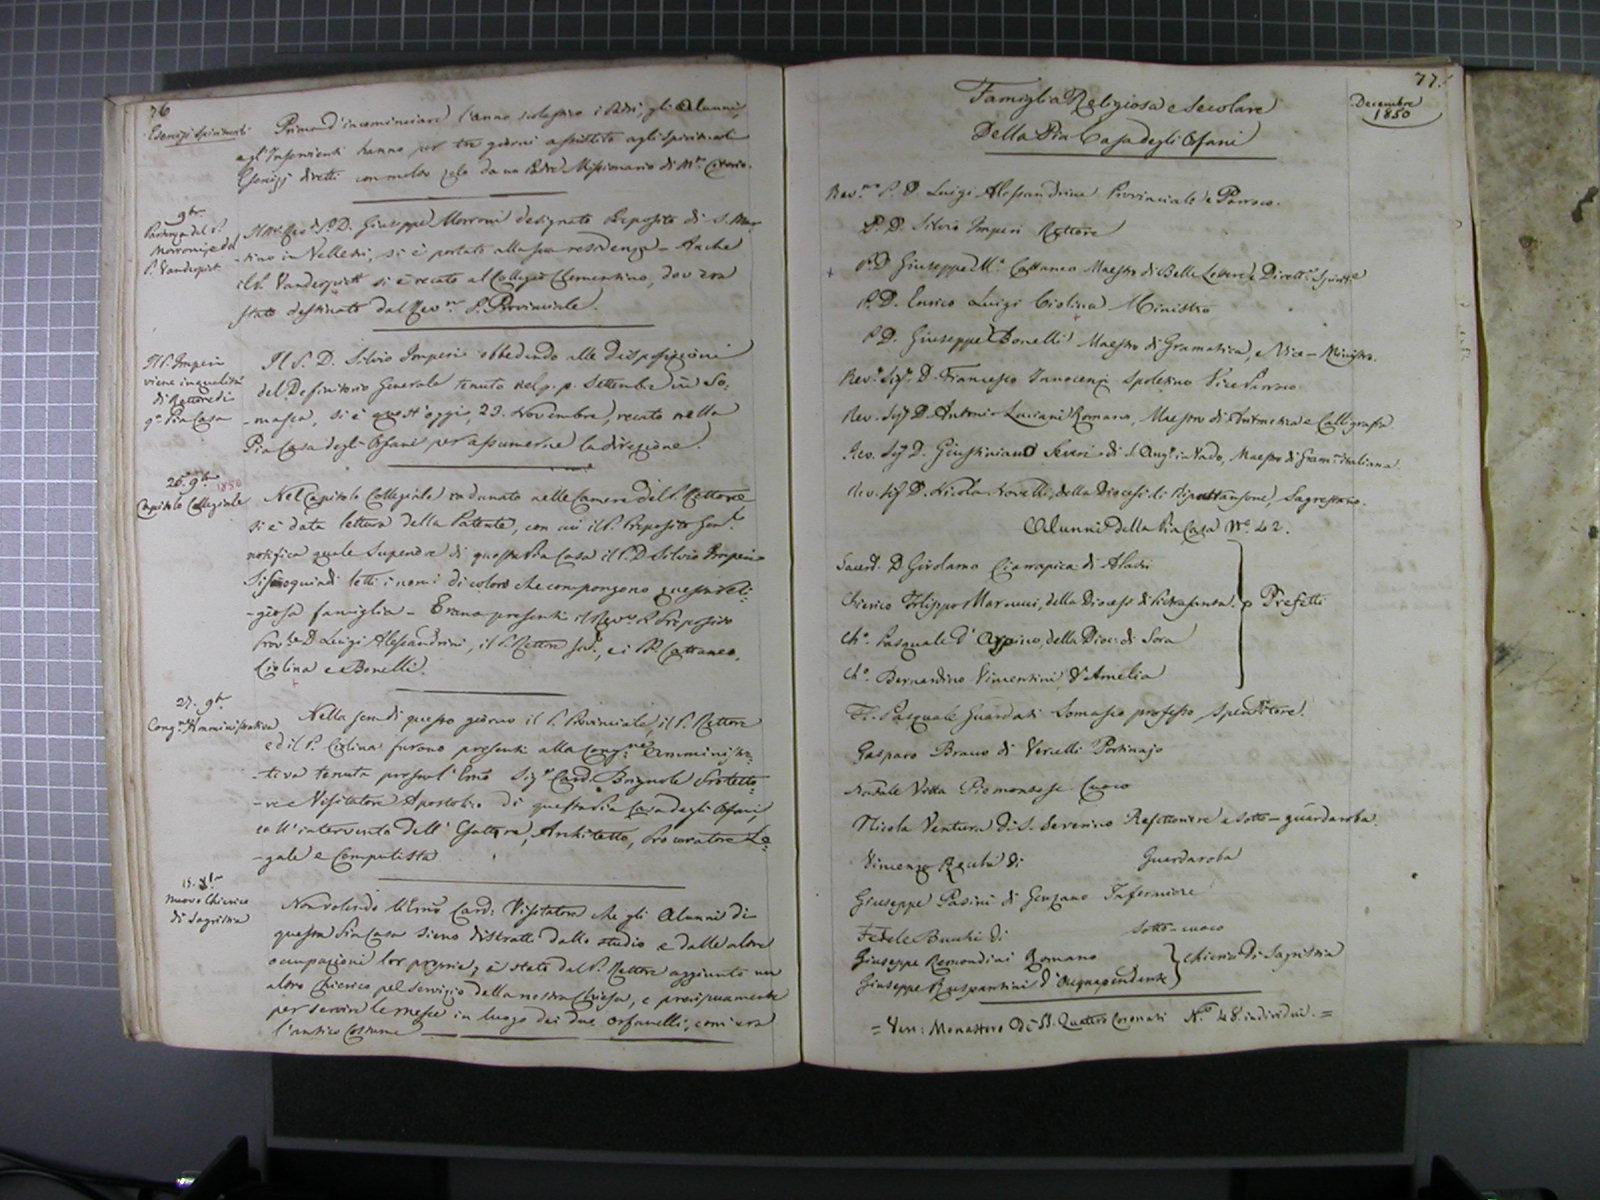 76
Esercizi Spirituali
Prima d'incominciare l'anno scolastico i Padri, gli Alunni,
e gl'Inservienti hanno per tre giorni assistito agli Spirituali
Esercizj diretti con molto zelo da un Padre Missionario di M.te Citorio.
9bre
Partenza del P.
Morroni, e del
P. Vandequist
Il M.to Rev.do P. D. Giuseppe Morroni designato Preposito di S. Mar-
-tino in Velletri, si è portato alla sua residenza - Anche
il P. Vandequist si è recato al Collegio Clementino, dov'era
stato destinato dal Rev.mo P. Provinciale.
Il P. Imperi
viene in qualità
di Rettore di
q.a Pia Casa
Il P. D. Silvio Imperi obbedendo alle disposizioni
del Definitorio Generale tenuto nel p. p. Settembre in So-
-masca, si è quest'oggi, 23. Novembre, recato nella
Pia Casa degli Orfani per assumerne la direzione.
26. 9bre 1850
Capitolo Collegiale
Nel Capitolo Collegiale radunato nelle Camere del P. Rettore
si è data lettura della Patente, con cui il P. Preposito Gen.le
notifica quale Superiore di questa Pia Casa il P. D. Silvio Imperi
Si sono quindi letti i nomi di coloro che compongono questa reli-
-giosa famiglia - Erano presenti il Rev.mo P. Preposito
Prov.le D. Luigi Alessandrini, il P. Rettore sud.o, e i PP. Cattaneo,
Ciolina e Bonelli.
27. 9bre
Cong.ne Amministrativa
Nella sera di questo giorno il P. Provinciale, il P. Rettore
ed il P. Ciolina furono presenti alla Cong.ne Amministra-
-tiva tenuta presso l'Emo Sig.r Card. Brignole Protetto-
-re e Visitatore Apostolico di questa Pia Casa degli Orfani,
coll'intervento dell'Esattore, Architetto, Procuratore Le-
-gale e Computista
15. Xbre
Nuovo Chierico
di Sagristia
Non volendo l'Emo Card. Visitatore che gli Alunni di
questa Pia Casa sieno distratti dallo studio e dalle altre
occupazioni lor proprie, è stato dal P. Rettore aggiunto un
altro Chierico pel servizio della nostra Chiesa, e precipuamente
per servire le messe in luogo dei due orfanelli, com'era
l'antico costume
77.
Decembre
1850
Famiglia Religiosa e Secolare
Della Pia Casa degli Orfani
Rev.mo P. D. Luigi Alessandrini Provinciale e Parroco.
P. D. Silvio Imperi Rettore
P. D. Giuseppe M.a Cattaneo Maestro di Belle Lettere e Dirett.e Spirit.e
P. D. Enrico Luigi Ciolina Ministro
P. D. Giuseppe Bonelli Maestro di Gramatica, e Vice-Ministro.
Rev. Sig.r D. Francesco Innocenzi Spoletino Vice Parroco
Rev. Sig.r D. Antonio Luciani Romano, Maestro di Aritmetica e Calligrafia
Rev. Sig.r D. Giustiniano Severi di S. Ang.o in Vado, Maestro di Gram.a italiana.
Rev. Sig.r D. Nicola Novelli, della Diocesi di Ripatransone, Sagrestano.
Alunni della Pia Casa N.o 42.
Sacerd. D. Girolamo Ciarrapica di Alatri
Chierico Filippo Marcucci, della Diocesi di
Prefetti
Ch.o Pasquale D'Arpino, della Dioc. di Sora
Ch.o Bernardino Vimentini d'Amelia
Fr. Pasquale Guardati Somasco professo Spenditore.
Gasparo Bravo di Vercelli Portinajo
Natale Vitta Piemontese. Cuoco
Nicola Ventura di S. Severino Refettoriere e sotto-guardaroba.
Vincenzo Recchi di Guardaroba
Giuseppe Pasini di Genzano Infermiere
Fedele Bucchi di sotto-cuoco
Giuseppe Remondini Romano
Chierici di Sagristia
Giuseppe Ruspantini d'Acquapendente
= Ven: Monastero di SS. Quattro Coronati N.o 48. individui. =